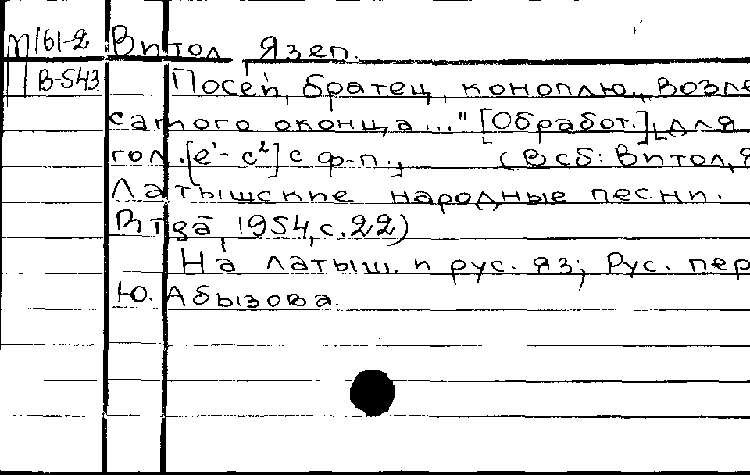 М161-2 Витол Язеп.
В-543 Посей, братец, коноплю, возле
самого оконца..." [Обработ.] для
гол. [e¹-c²] с ф-п., (В сб: Витол, Я
Латышские народные песни.
Рига, 1954, с. 22)
На латыш. и рус. яз; Рус. пер
Ю. Абызова.